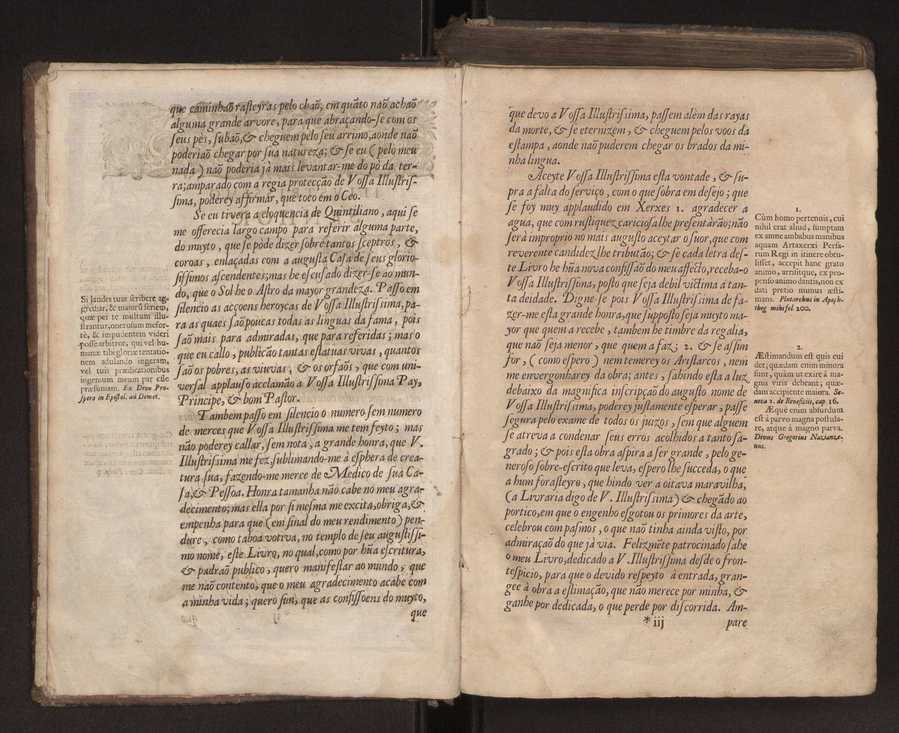 que caminhaõ rasteyras pelo chaõ, em quãto naõ achaõ
alguma grande arvore, para que abraçando-se com os
seus pès, subaõ, & cheguem pelo seu arrimo, aonde naõ
poderiaõ chegar por sua natureza; & se eu (pelo meu
nada) naõ poderia jà mais levantar-me do pò da ter-
ra; amparado com a regia protecção de Vossa Illustris-
sima, poderey affirmar, que toco em o Ceo.
Se eu tivera a eloquencia de Quintiliano, aqui se
me offerecia largo campo para referir alguma parte,
do muyto, que se pòde dizer sobre tantos sceptros, &
coroas, enlaçadas com a augusta Casa de seus glorio-
sissimos ascendentes; mas he escusado dizer-se ao mun-
do, que o Sol he o Astro da mayor grandeza. Passo em
silencio as acçoens heroycas de Vossa Illustrissima, pa-
ra as quaes saõ poucas todas as linguas da fama, pois
saõ mais para admiradas, que para referidas; mas o
que eu callo, publicão tantas estatuas vivas, quantos
saõ os pobres, as viuvas, & os orfaõs, que com uni-
versal applauso acclamão a Vossa Illustrissima Pay,
Principe, & bom Pastor.
Tambem passo em silencio o numero sem numero
de merces que Vossa Illustrissima me tem feyto; mas
não poderey callar, sem nota, a grande honra, que V.
Illustrissima me fez, sublimando-me à esphera de crea-
tura sua, fazendo-me merce de Medico de sua Ca-
sa, & Pessoa. Honra tamanha não cabe no meu agra-
decimento; mas ella por si mesma me excita, obriga, &
empenha para que (em sinal do meu rendimento) pen-
dure, como taboa votiva, no templo de seu augustissi-
mo nome, este Livro, no qual, como por hũa escritura,
& padraõ publico, quero manifestar ao mundo, que
me não contento, que o meu agradecimento acabe com
a minha vida; quero sim, que as confissoens do muyto,
que
Si laudes tuas scribere ag-
grediar, & majorũ serieni,
quæ per te multum illu-
strantur, onerosum mefor-
rè, & impudentem videri
posse arbitror, qui vel hu-
manæ tibi gloriæ tentatio-
nem adulando ingeram,
vel tuis prædicationibus
ingenium meum par esse
præsumam. Ex Divo Pro-
spero in Epistol. ad Demet.
que devo a Vossa Illustrissima, passem alèm das rayas
da morte, & se eternizem, & cheguem pelos voos da
estampa, aonde não puderem chegar os brados da mi-
nha lingua.
Aceyte Vossa Illustrissima esta vontade, & su-
pra a falta do serviço, com o que sobra em desejo; que
se foy muy applaudido em Xerxes 1. agradecer a
agua, que com rustiquez cariciosa lhe presentàrão; não
serà improprio no mais augusto aceytar o suor, que com
reverente candidez lhe tributão; & se cada letra des-
te Livro he hũa nova confissaõ do meu affecto, receba-o
Vossa Illustrissima, posto que seja debil victima a tan-
ta deidade. Digne-se pois Vossa Illustrissima de fa-
zer-me esta grande honra, que supposto seja muyto ma-
yor que quem a recebe, tambem he timbre da regalia,
que naõ seja menor, que quem a faz; 2. & se assim
for, (como espero) nem temerey os Aristarcos, nem
me envergonharey da obra; antes, sahindo esta a luz
debaixo da magnifica inscripção do augusto nome de
Vossa Illustrissima, poderey justamente esperar, passe
segura pelo exame de todos os juizos, sem que alguem
se atreva a condenar seus erros acolhidos a tanto sa-
grado; & pois esta obra aspira a ser grande, pelo ge-
neroso sobre-escrito que leva, espero lhe succeda, o que
a hum forasteyro, que hindo ver a oitava maravilha,
(a Livraria digo de V. Illustrissima) & chegãdo ao
portico, em que o engenho esgotou os primores da arte,
celebrou com pasmos, o que não tinha ainda visto, por
admiração do que jà via. Felizmẽte patrocinado sahe
o meu Livro, dedicado a V. Illustrissima desde o fron-
tespicio, para que o devido respeyto à entrada, gran-
gee à obra a estimação, que não merece por minha, &
ganhe por dedicada, o que perde por discorrida. Am-
* iij pare
1.
Cùm homo pertenuis, cui
nihil erat aliud, sumptam
ex amne ambabus manibus
aquam Artaxerxi Persa-
rum Regi in itinere obtu-
lisset, accepit hanc grato
animo, arrisitque, ex pro-
penso animo dantis, non ex
dati pretio munus æsti-
mans. Plutarchus in Apoph-
theg. mihi fol. 200.
2.
Æstimandum est quis cui
det; quædam enim minora
sunt, quàm ut exire à ma-
gnis viris debeant; quæ-
dam accipiente maiora. Se-
neca 2. de Beneficiis, cap. 16.
Æquè enim absurdum
est à parvo magna postula-
re, atque à magno parva.
Divus Gregorius Nazianze-
nus.